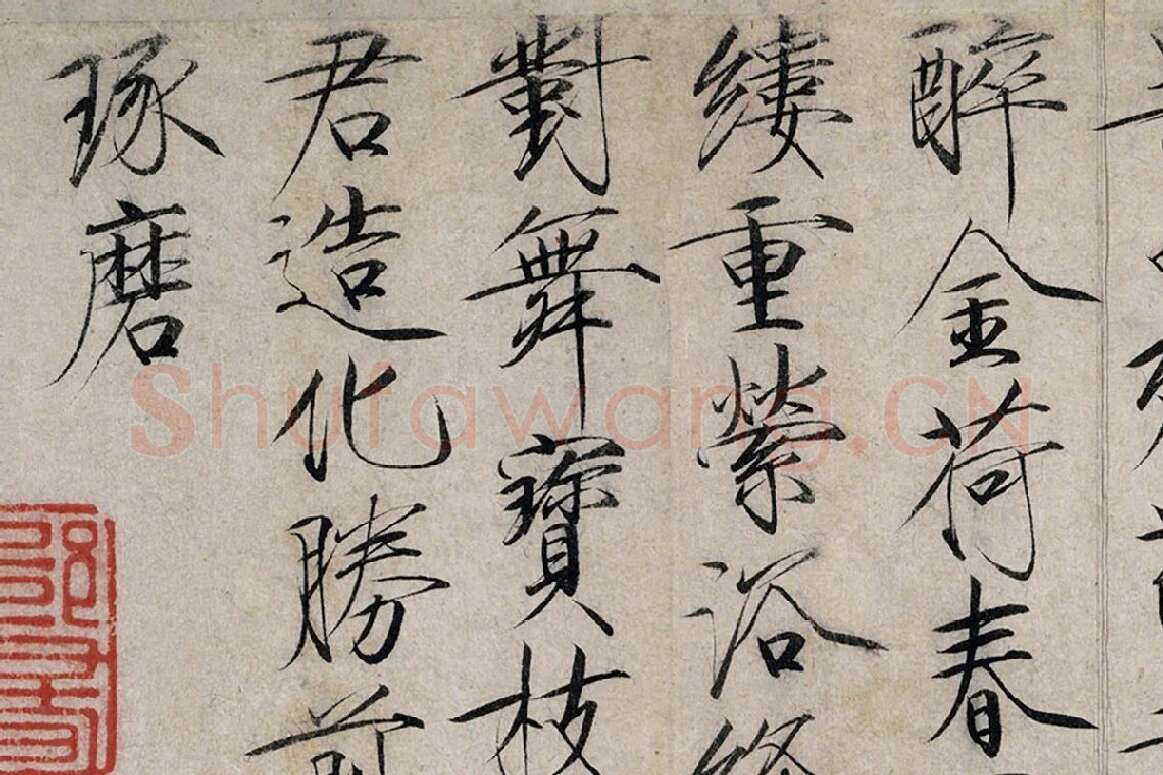 醉金荷春
縷重縈浴
對舞寶枝
君造化勝前
琢磨
Shufawang.CN